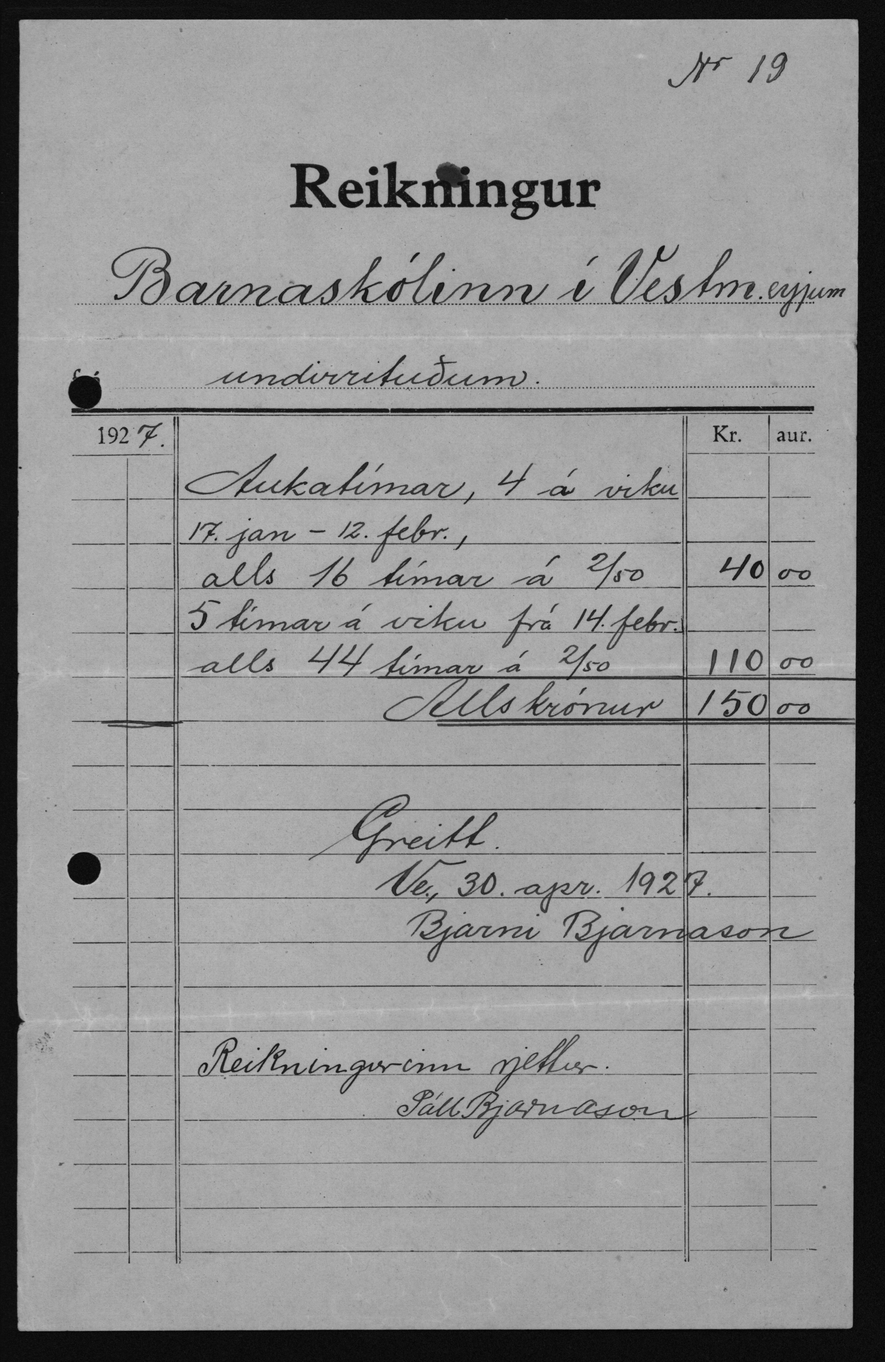 Nr 19
Reikningur
Barnaskólinn í Vestm.eyjum
undirrituðum.
1927. Kr. aur.
Aukatímar, 4 á viku
17. jan - 12. febr.,
alls 16 tímar á 2/50 40 00
5 tímar á viku frá 14. febr.
alls 44 tímar á 2/50 110 00
Alls krónur 150 00
Greitt.
Ve., 30. apr. 1927.
Bjarni Bjarnason
Reikningurinn rjettur.
Páll Bjarnason